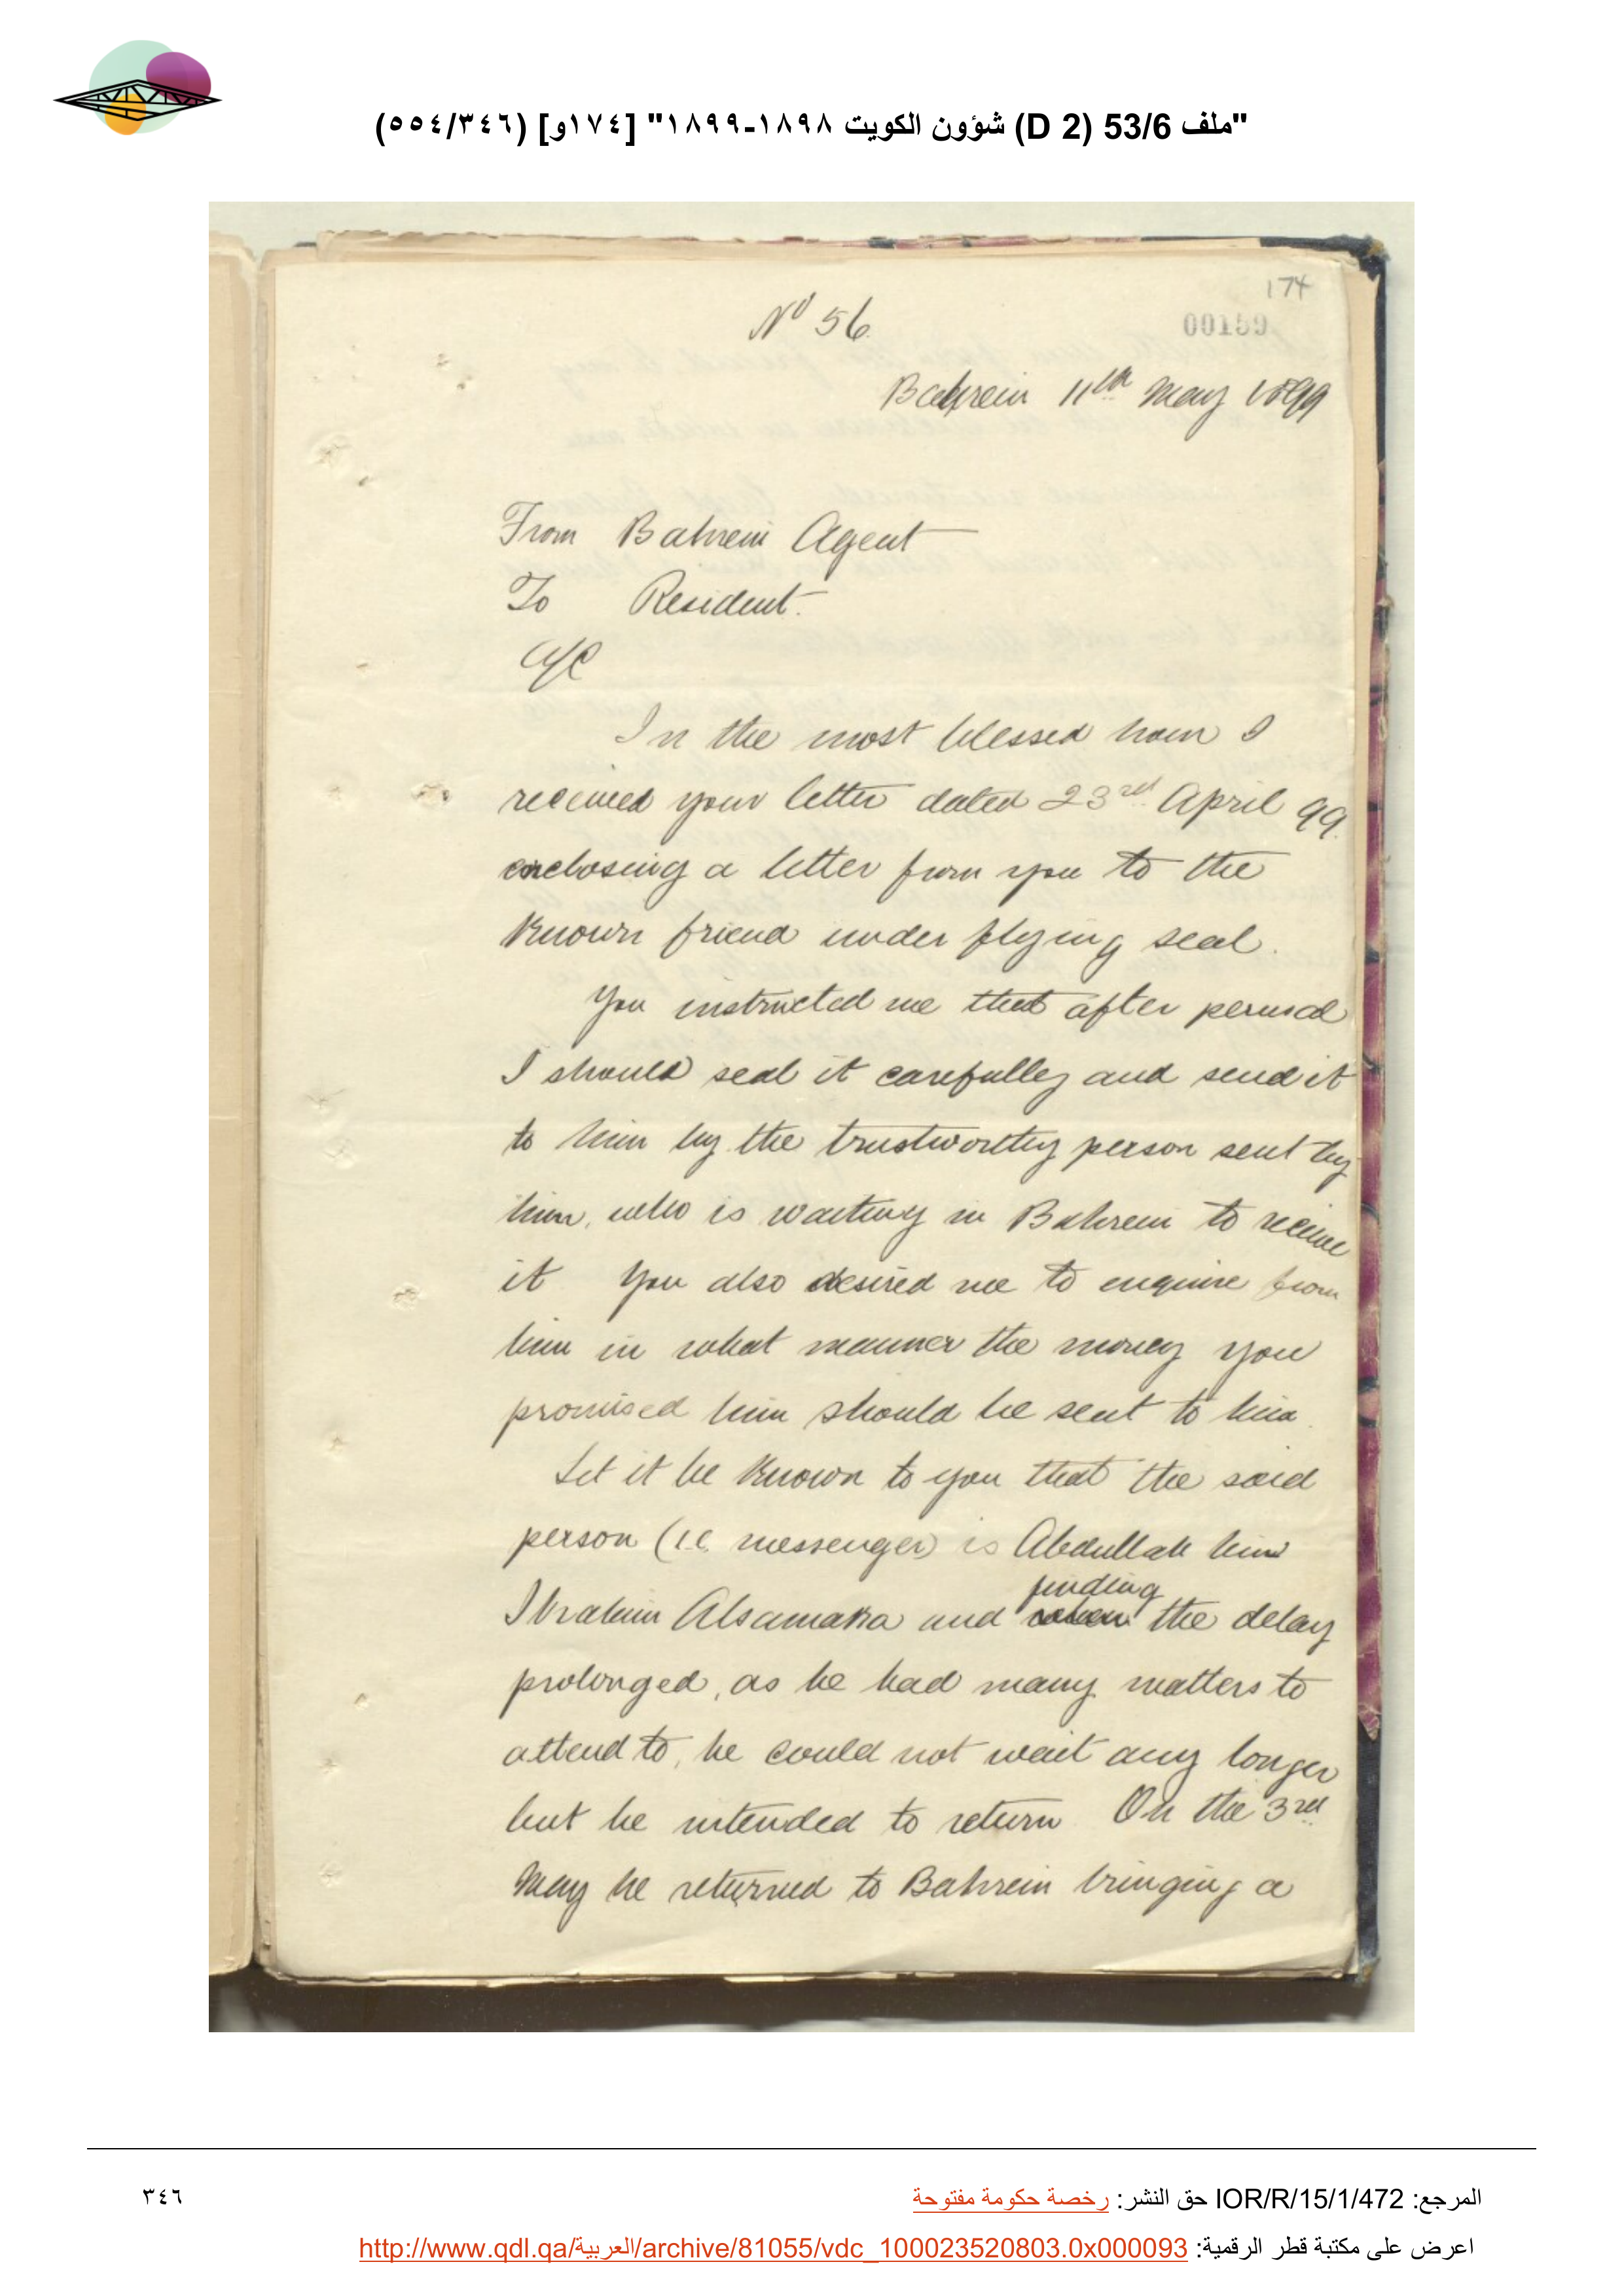 "ملف 53/6 (D 2) شؤون الكويت ١٨٩٨-١٨٩٩" [١٧٤و] (٥٥٤/٣٤٦)
174
No 56
00159
Bahrein 11th May 1899
From Bahrein Agent
To Resident.
A/C
In the most blessed hour I
received your letter dated 23rd April 99.
enclosing a letter from you to the
known friend under flying seal.
You instructed me that after perusal
I should seal it carefully and send it
to him by the trustworthy person sent by
him, who is waiting in Bahrein to receive
it You also desired me to enquire from
him in what manner the money you
promised him should be sent to him.
Let it be known to you that the said
person (i.e. messenger) is Abdullah bin
finding
Ibrahim Alsamaka and when the delay
prolonged, as he had many matters to
attend to, he could not wait any longer
but he intended to return On the 3rd
May he returned to Bahrein bringing a
المرجع: IOR/R/15/1/472 حق النشر: رخصة حكومة مفتوحة
٣٤٦
اعرض على مكتبة قطر الرقمية: http://www.qdl.qa/العربية/archive/81055/vdc_100023520803.0x000093